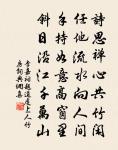 詩思禪心共竹閑
任他流水向人間
手持如意高窗里
斜日沿江千萬山
李嘉祐題道虔上人竹
房詞典網集